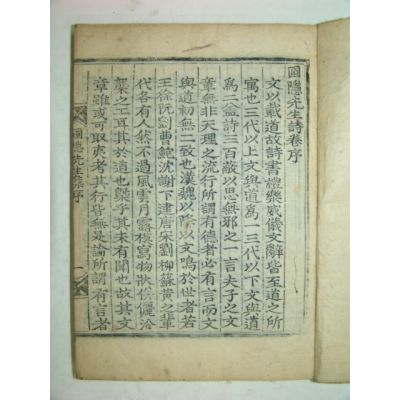 圃隱先生詩卷序
文以載道故詩書禮樂威儀文辭皆至道之所
寓也三代以上文與道爲一三代以下文與道
爲二盖詩三百蔽以思無邪之一言夫子之文
章無非天理之流行所謂有德者必有言而文
與道初無二致也漢魏以降以文鳴於世者若
王徐阮劉曹鮑沈謝下逮唐宋劉柳蘇黃之輩
代各有人然不過風雲月露模寫物狀俗儷洽
槩之工耳其於道也槩乎其未有聞也故其文
章雖或可取夷考其行皆無足論所謂有言者
圃隱先生集序
一